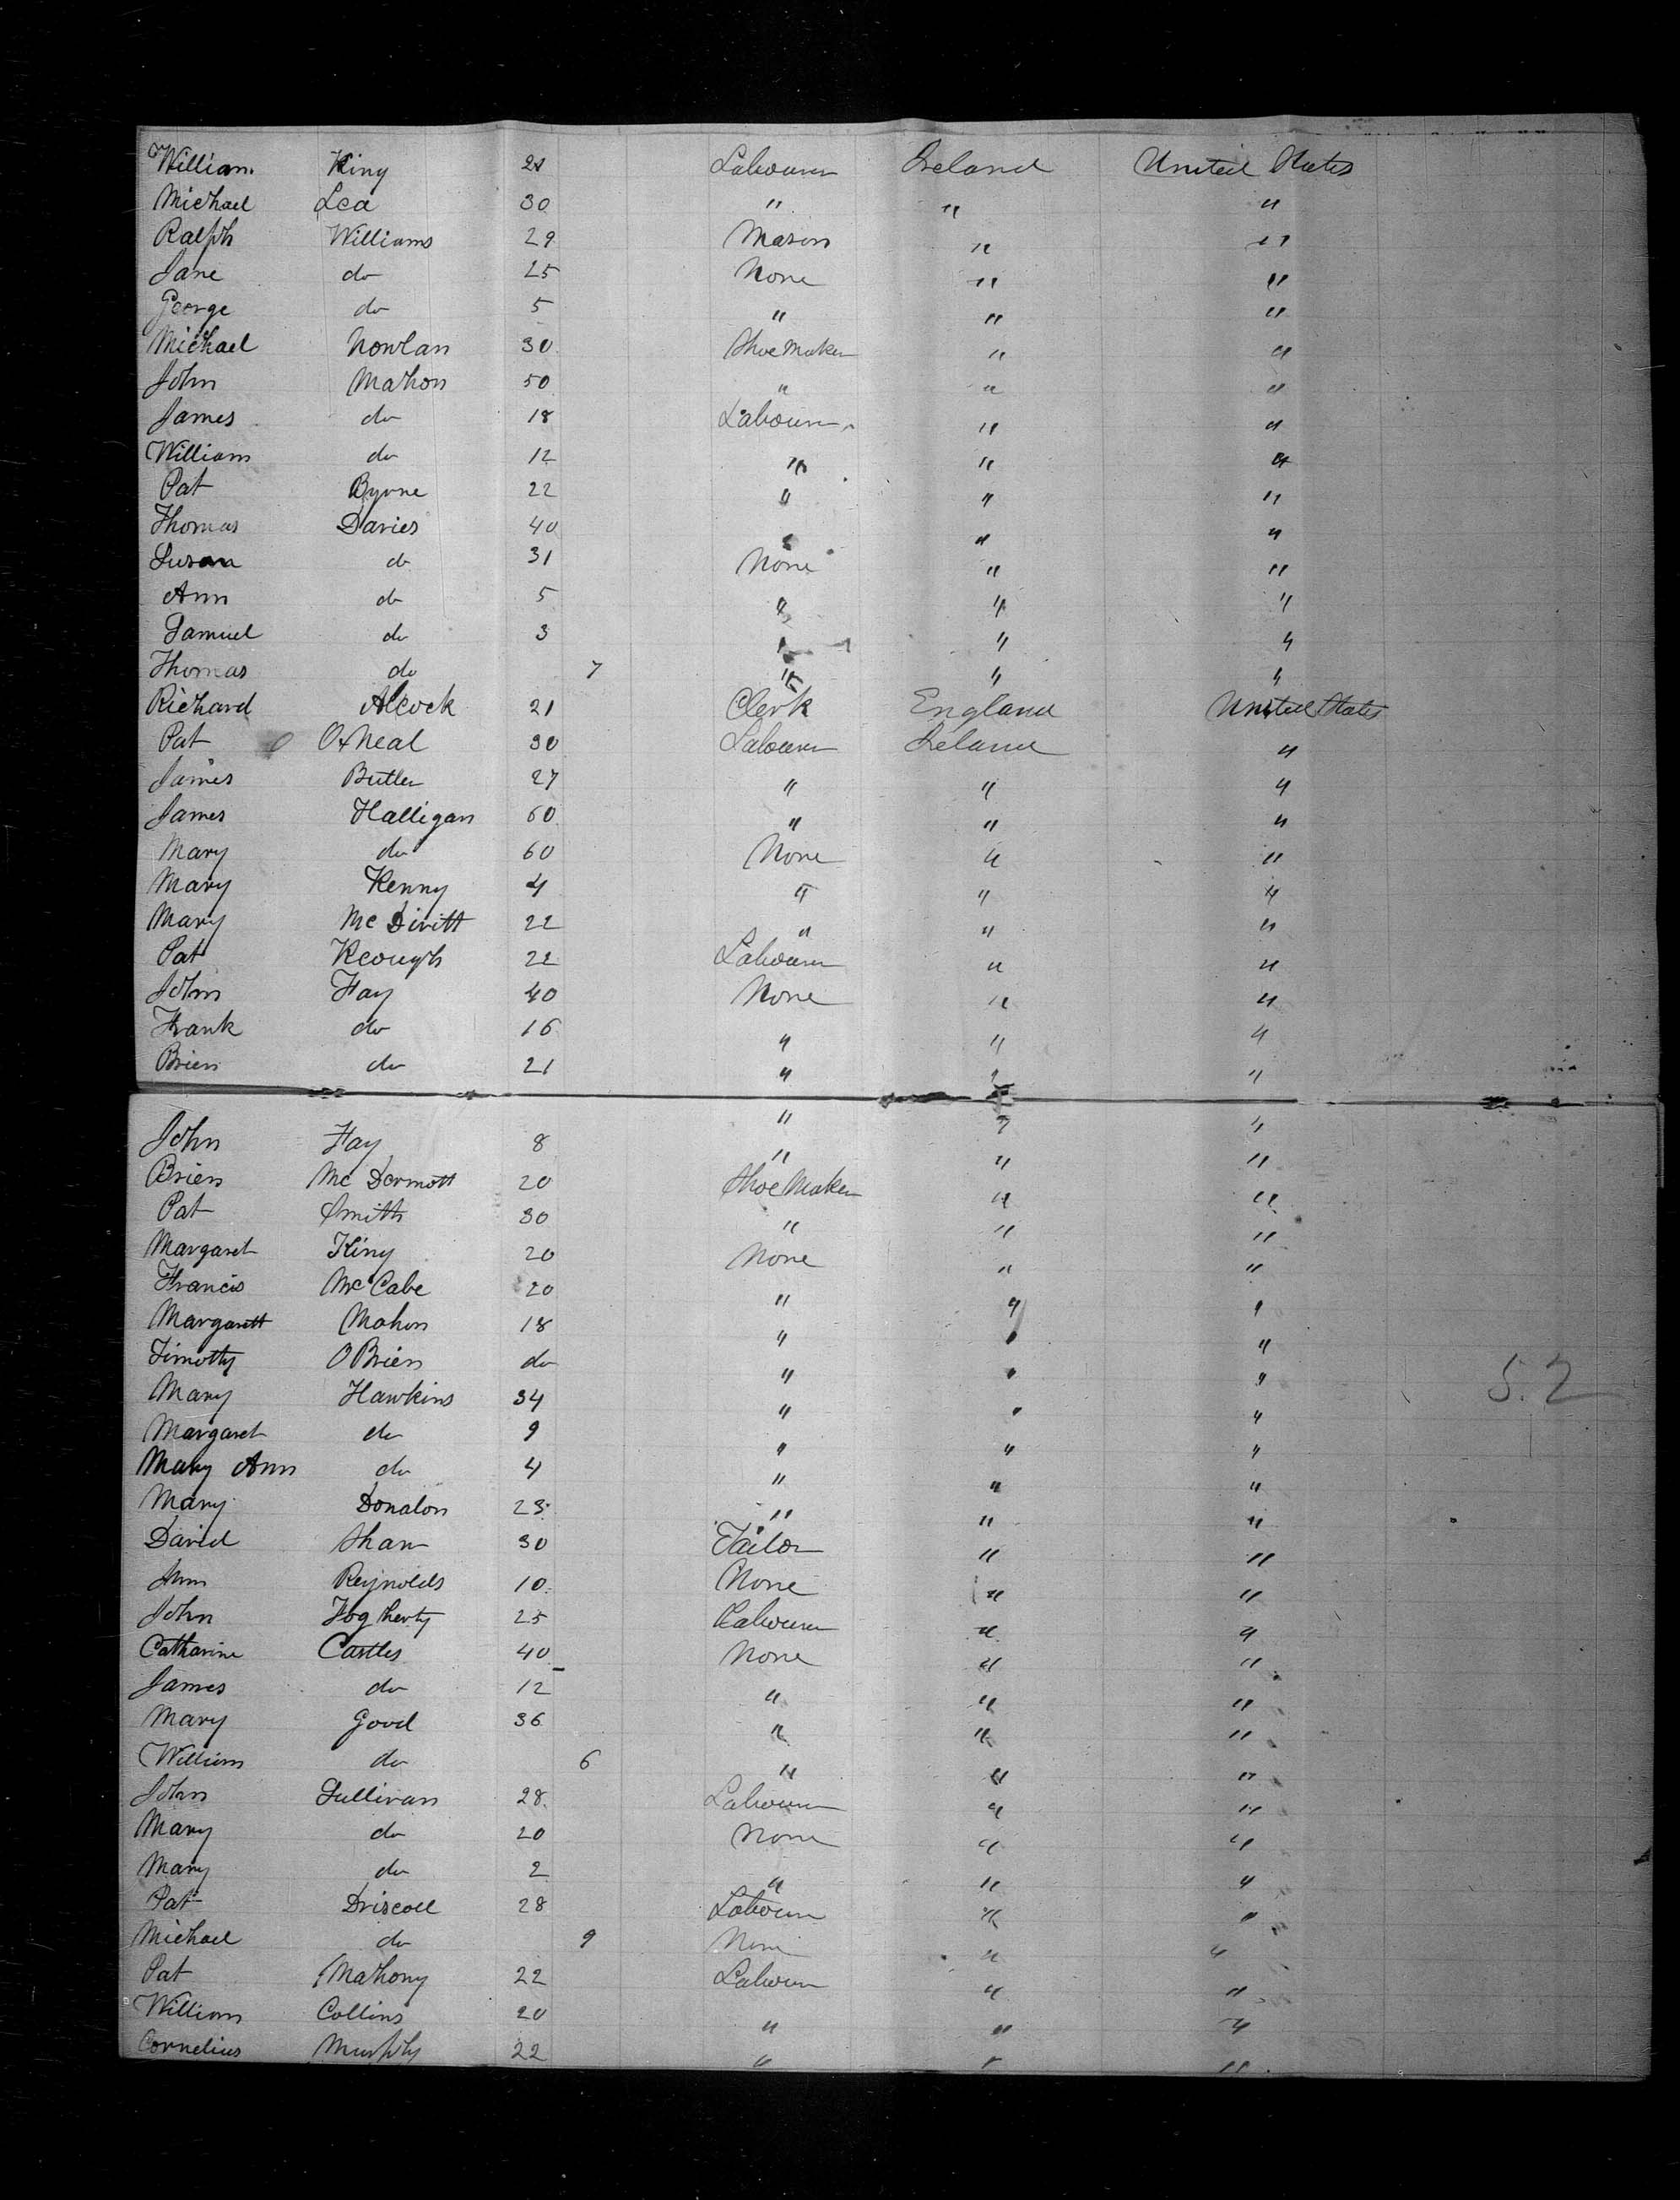 William King 21 Labourer Ireland United States
Michael Lea 30 " " "
Ralph Williams 29 Mason " "
Jane do 25 None " "
George do 5 " " "
Michael Nowlan 30 Shoe Maker " "
John Mahon 50 " " "
James do 18 Labourer " "
William do 12 " " "
Pat Byrne 22 " " "
Thomas Davies 40 " " "
Susan do 31 None " "
Ann do 5 " " "
Samuel do 3 " " "
Thomas do 7 " " "
Richard Alcock 21 Clerk England United States
Pat O Neal 30 Labourer Ireland "
James Butler 27 " " "
James Halligan 60 " " "
Mary do 60 None " "
Mary Kenny 4 " " "
Mary Mc Divitt 22 " " "
Pat Keough 22 Labourer " "
John Fay 40 None " "
Frank do 16 " " "
Brien do 21 " " "
John Fay 8 " " "
Brien Mc Dermott 20 " " "
Pat Smith 30 Shoe Maker " "
Margaret King 20 " " "
Francis McCabe 20 None " "
Margarett Mahon 18 " " "
Timothy O Brien do " " "
Mary Hawkins 34 " " "
Margaret do 9 " " "
Mary Ann do 4 " " "
Mary Donalon 23 " " "
David Shaw 30 Tailor " "
Ann Reynolds 10 None " "
John Fogherty 25 Labourer " "
Catharine Castles 40 None " "
James do 12 " " "
Mary Good 36 " " "
William do 6 " " "
John Sullivan 28 Labourer " "
Mary do 20 None " "
Mary do 2 " " "
Pat Driscoll 28 Labourer " "
Michael do 9 None " "
Pat Mahony 22 Labourer " "
William Collins 20 " " "
Cornelius Murphy 22 " " "
52